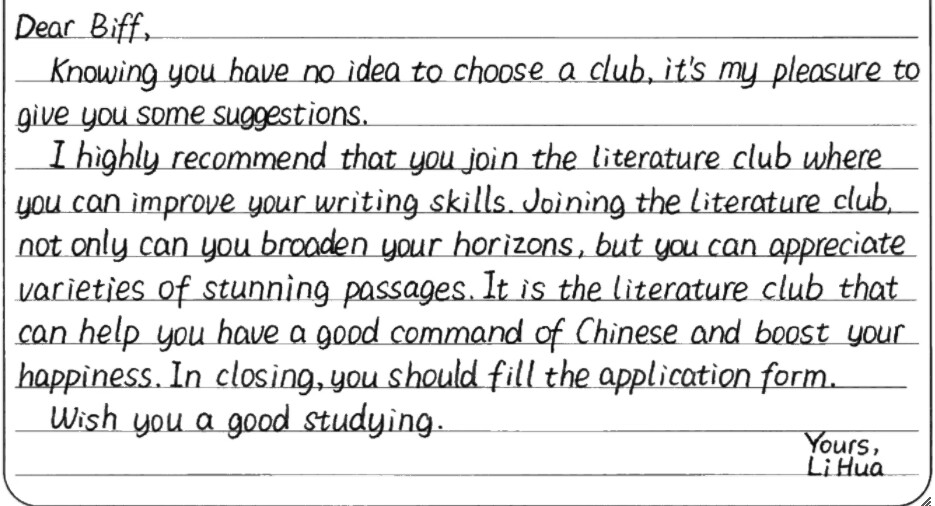 Dear Biff,
Knowing you have no idea to choose a club, it's my pleasure to
give you some suggestions.
I highly recommend that you join the literature club where
you can improve your writing skills. Joining the literature club,
not only can you broaden your horizons, but you can appreciate
varieties of stunning passages. It is the literature club that
can help you have a good command of Chinese and boost your
happiness. In closing, you should fill the application form.
Wish you a good studying.
Yours,
Li Hua